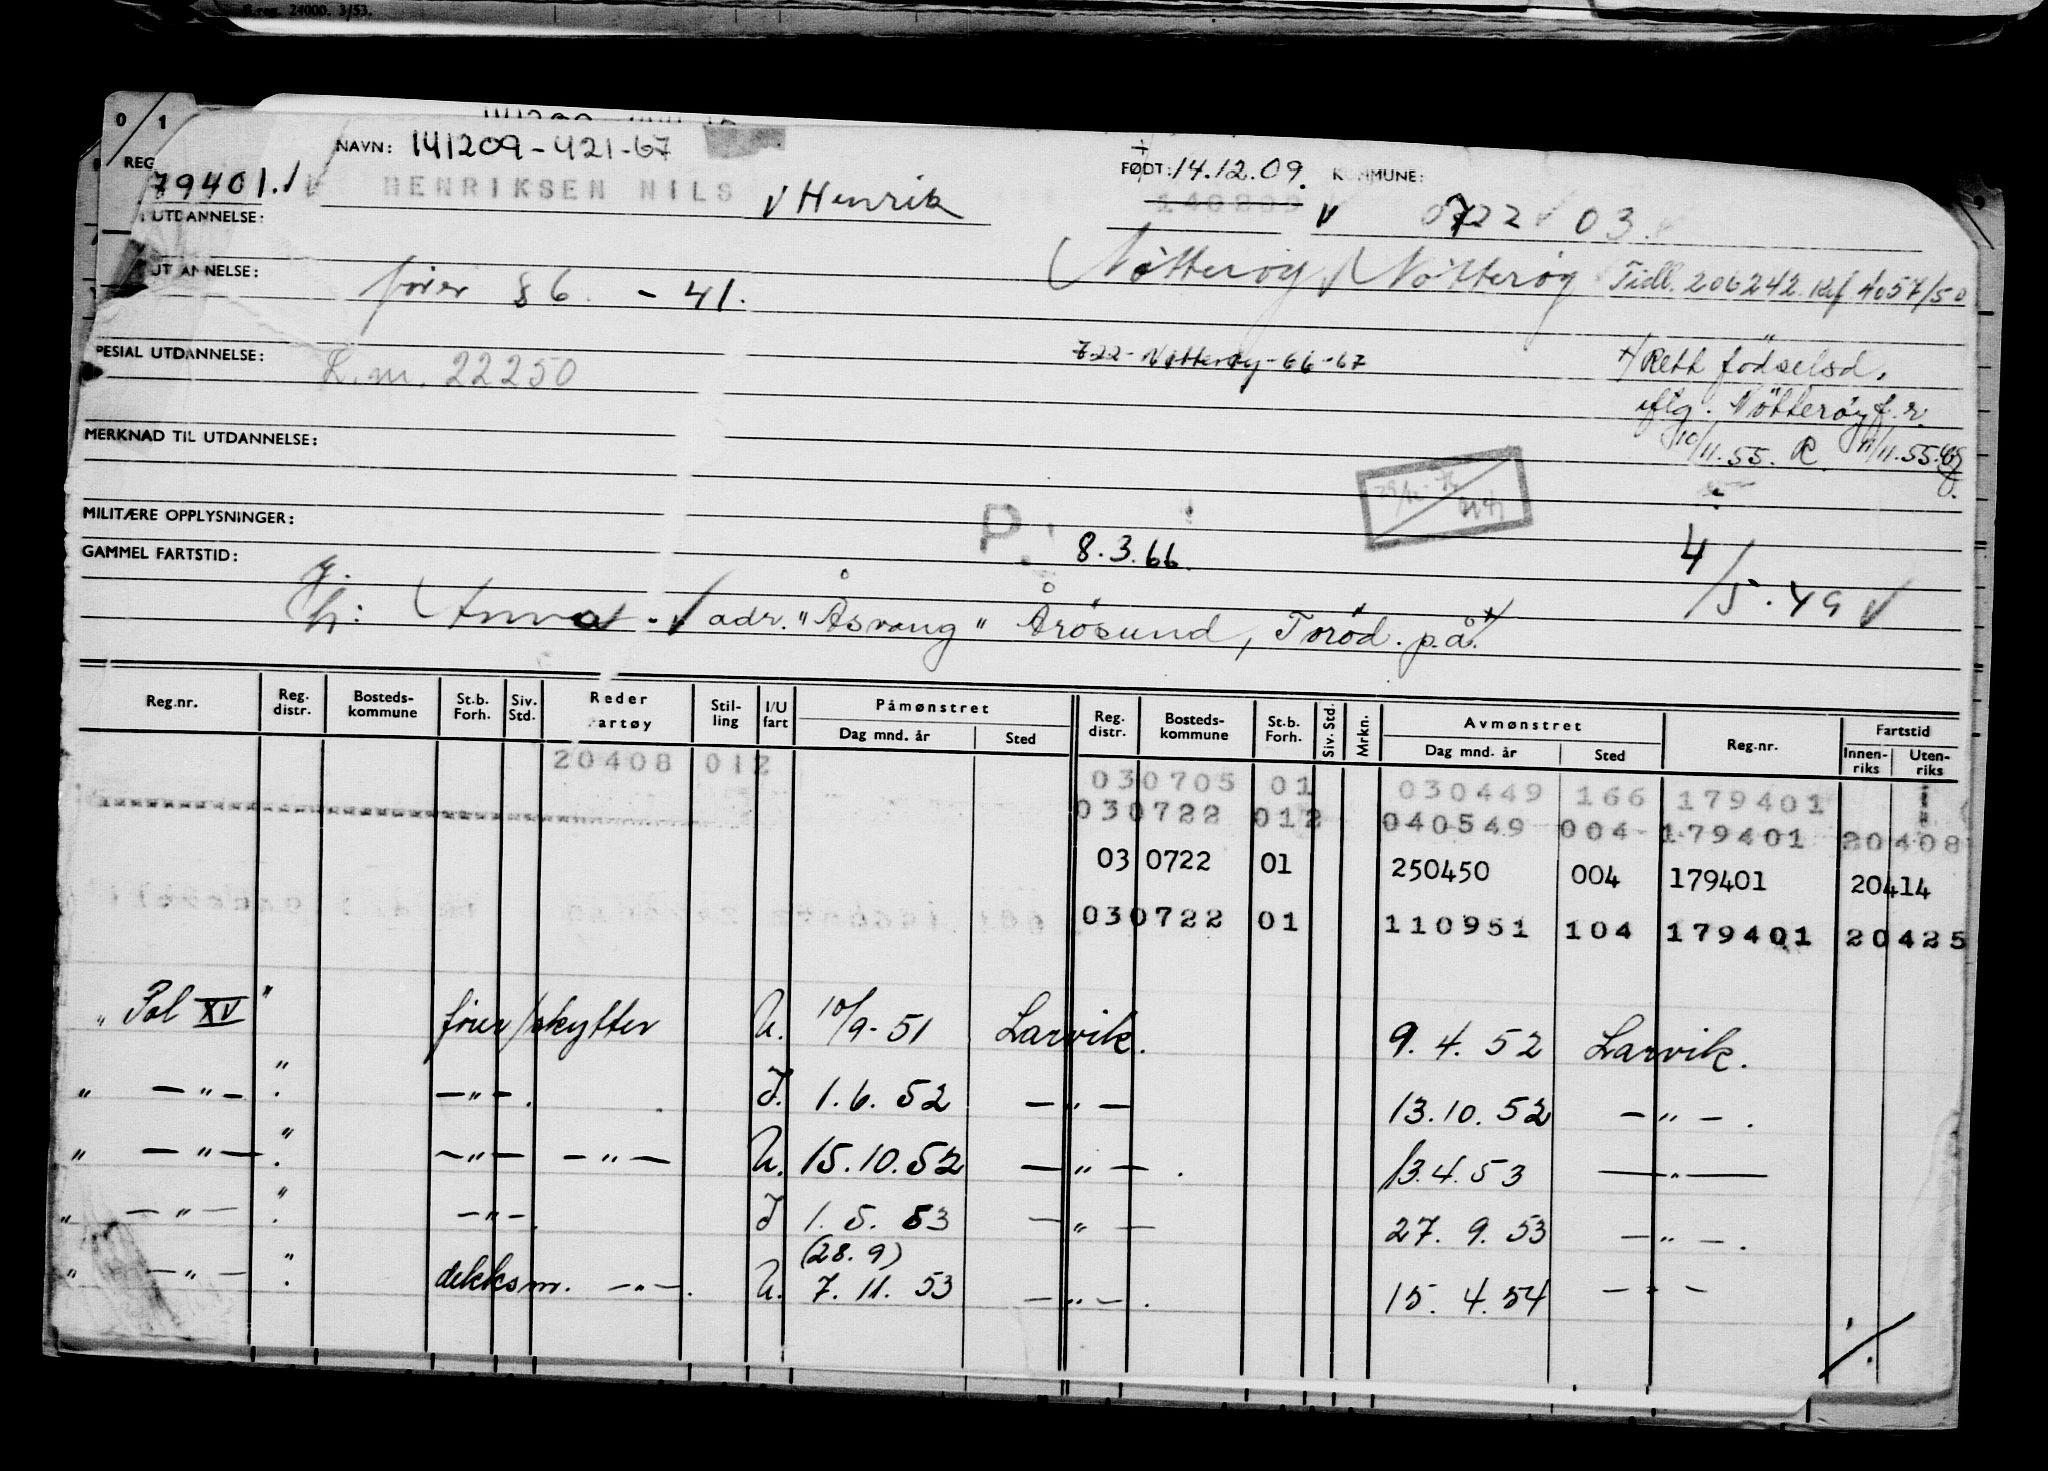 S.reg. 24000. 3/53.
0 / 1
NAVN: 141209-421-67
REG
79401.
HENRIKSEN NILS v Henrik
FØDT: 14.12.09. KOMMUNE:
0722 03.
UTDANNELSE:
Nøtterøy Nøtterøy Tidl. 206242. Kf. 4057/50
UTDANNELSE:
fører § 6. - 41.
PESIAL UTDANNELSE:
K.m. 22250
722 - Nøtterøy - 66-67
x/ Rett fødselsd.
iflg. Nøtterøy f.r.
10/11.55. R. 11/11.55.
MERKNAD TIL UTDANNELSE:
MILITÆRE OPPLYSNINGER:
P. 8.3.66.
4/5.49 v
GAMMEL FARTSTID:
g.
h: Anna. v adr. "Åsvang" Årøsund, Torød. p.å.
Reg.nr. Reg. distr. Bosteds-kommune St.b. Forh. Siv. Std. Reder Fartøy Stil-ling I/U fart Påmønstret Dag mnd. år Sted Reg. distr. Bosteds-kommune St.b. Forh. Siv. Std. Mrkn. Avmønstret Dag mnd. år Sted Reg.nr. Fartstid Innen-riks Uten-riks
20408 012 030705 01 030449 166 179401
030722 012 040549 004 179401 20408
03 0722 01 250450 004 179401 20414
030722 01 110951 104 179401 20425
"Pol XV" fører/skytter U. 10/9-51 Larvik. 9.4.52 Larvik.
" — " — " — " — . I. 1.6.52 — " — 13.10.52 — " — .
" — " — " — " — — " — U. 15.10.52 — " — . 13.4.53 — " —
" — " — " — " — . I 1.5.53 — " — 27.9.53 — " — .
(28.9)
" — " — " dekksm. — " — . U. 7.11.53 — " — . 15.4.54 — " —